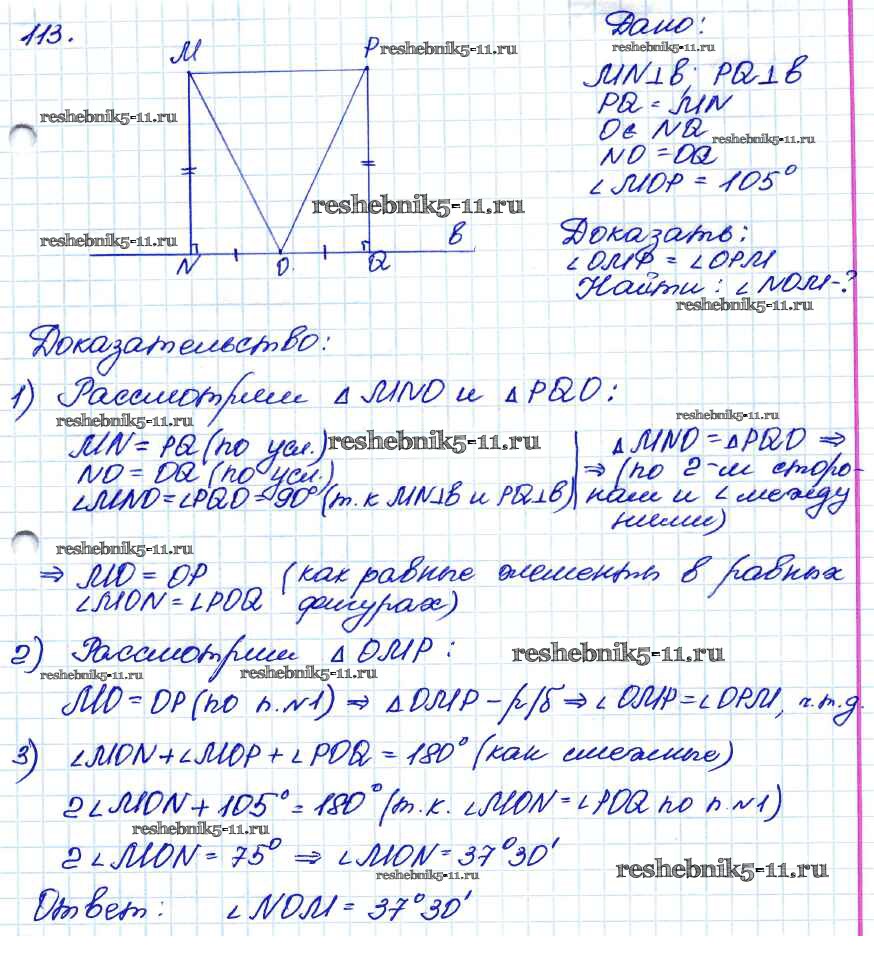 113.
M
P
reshebnik5-11.ru
reshebnik5-11.ru
reshebnik5-11.ru
reshebnik5-11.ru
в
N
O
Q
Дано:
reshebnik5-11.ru
MN⊥в; PQ⊥в
PQ = MN
O∈ NQ
reshebnik5-11.ru
NO = OQ
∠MOP = 105°
Доказать:
∠OMP = ∠OPM
Найти: ∠NOM-?
reshebnik5-11.ru
Доказательство:
1) Рассмотрим △ MNO и △PQO:
reshebnik5-11.ru
reshebnik5-11.ru
MN = PQ (по усл.)
reshebnik5-11.ru
NO = OQ (по усл.)
∠MNO = ∠PQO = 90° (т.к MN⊥в и PQ⊥в)
△MNO = △PQO ⇒
⇒ (по 2-м сторо-
нам и ∠ между
ними)
reshebnik5-11.ru
⇒ MO = OP (как равные элементы в равных
∠MON = ∠POQ фигурах)
2) Рассмотрим △ OMP:
reshebnik5-11.ru
reshebnik5-11.ru
reshebnik5-11.ru
MO = OP (по п.N1) ⇒ △OMP - р/б ⇒ ∠OMP = ∠OPM, ч.т.д.
3) ∠MON + ∠MOP + ∠POQ = 180° (как смежные)
2∠MON + 105° = 180° (т.к. ∠MON = ∠POQ по п.N1)
reshebnik5-11.ru
2∠MON = 75° ⇒ ∠MON = 37°30'
reshebnik5-11.ru
reshebnik5-11.ru
Ответ: ∠NOM = 37°30'